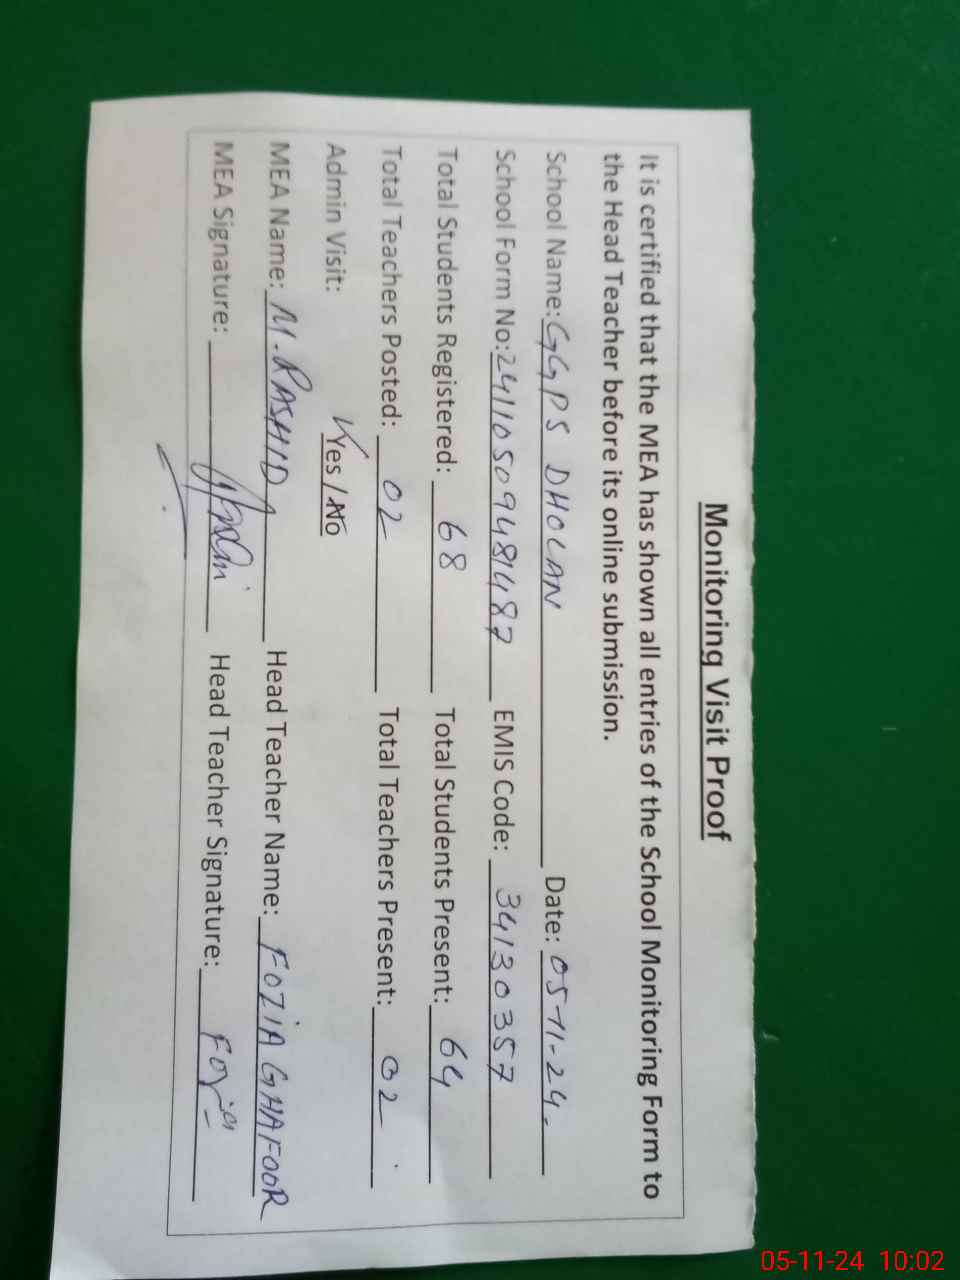 Monitoring Visit Proof
It is certified that the MEA has shown all entries of the School Monitoring Form to
the Head Teacher before its online submission.
School Name: GGPS DHOLAN Date: 05-11-24.
School Form No: 24110509481487 EMIS Code: 34130357
Total Students Registered: 68 Total Students Present: 64
Total Teachers Posted: 02 Total Teachers Present: 02
Admin Visit: Yes / No
MEA Name: M. RASHID Head Teacher Name: FOZIA GHAFOOR
MEA Signature: Head Teacher Signature:
05-11-24 10:02